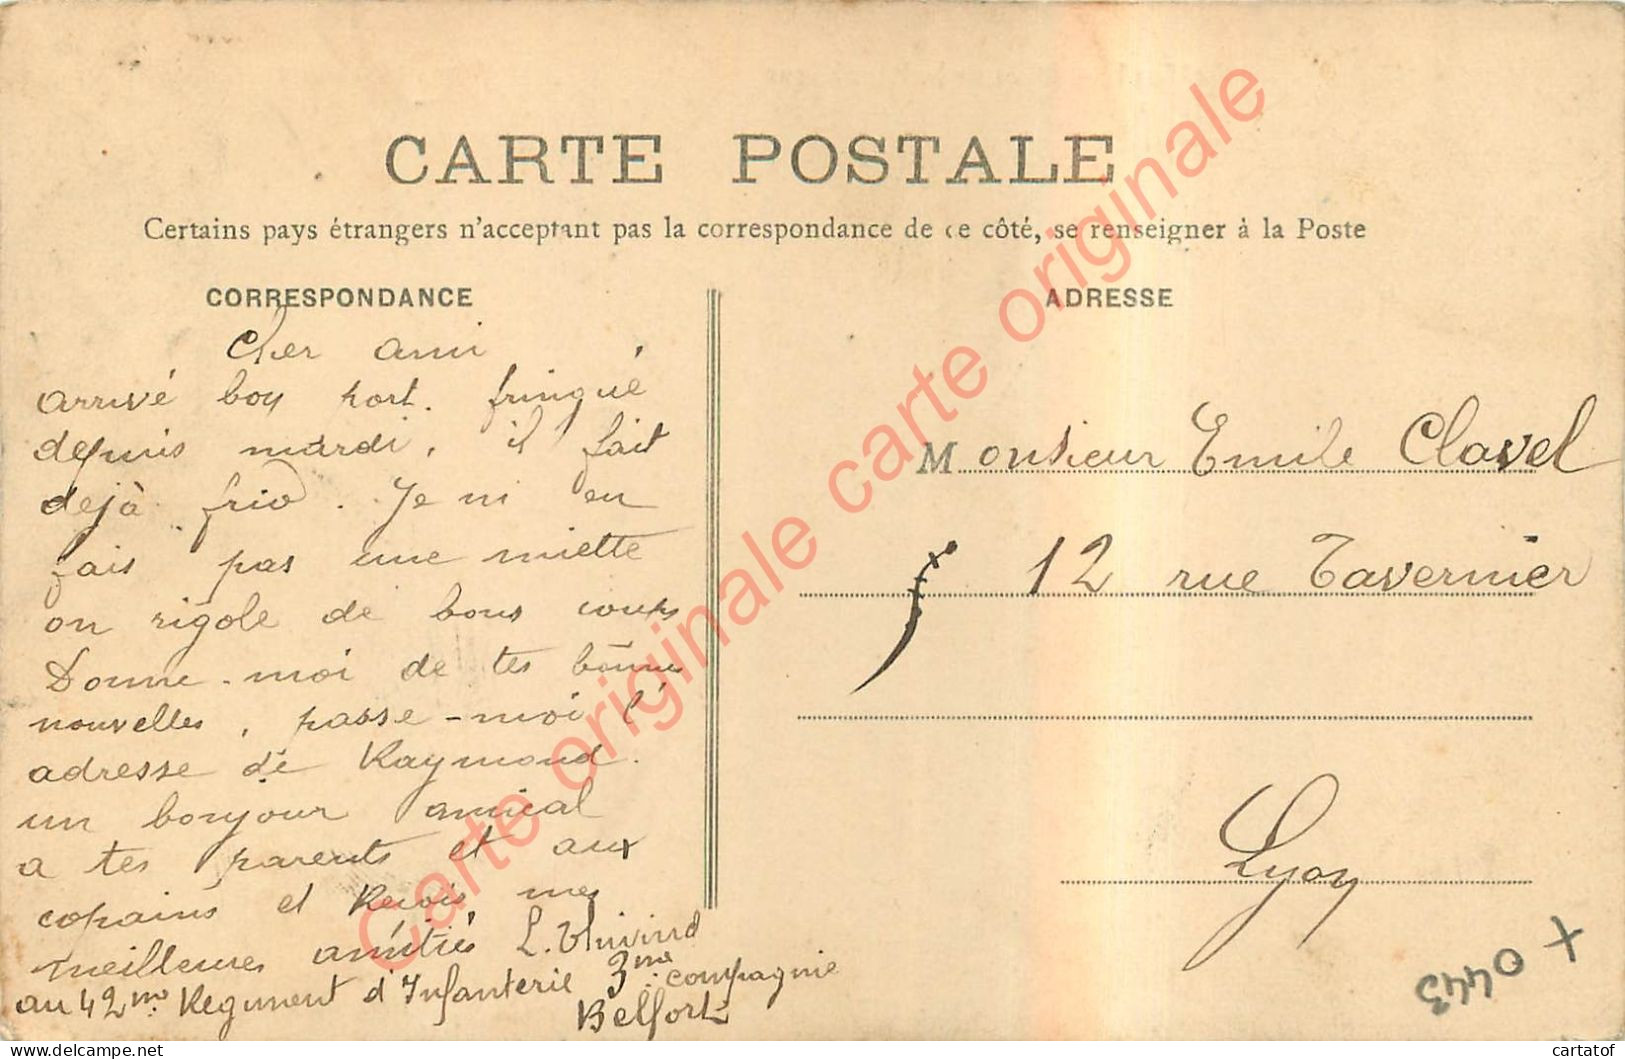 CARTE POSTALE
Certains pays étrangers n'acceptant pas la correspondance de ce côté, se renseigner à la Poste
CORRESPONDANCE
Cher ami
arrivé bon port. fringué
depuis mardi, il fait
dejà frid. Je ni en
fais pas une miette
on rigole de bons coups
Donne-moi de tes bonnes
nouvelles, passe-moi l'
adresse de Raymond.
un bonjour amical
a tes parents et aux
copains et Recois mes
meilleures amitiés L.
au 42me Regiment d'Infanterie 3me compagnie
Belfort
ADRESSE
Monsieur Emile Clavel
12 rue Tavernier
Lyon
0443
Carte originale carte originale
cartatof